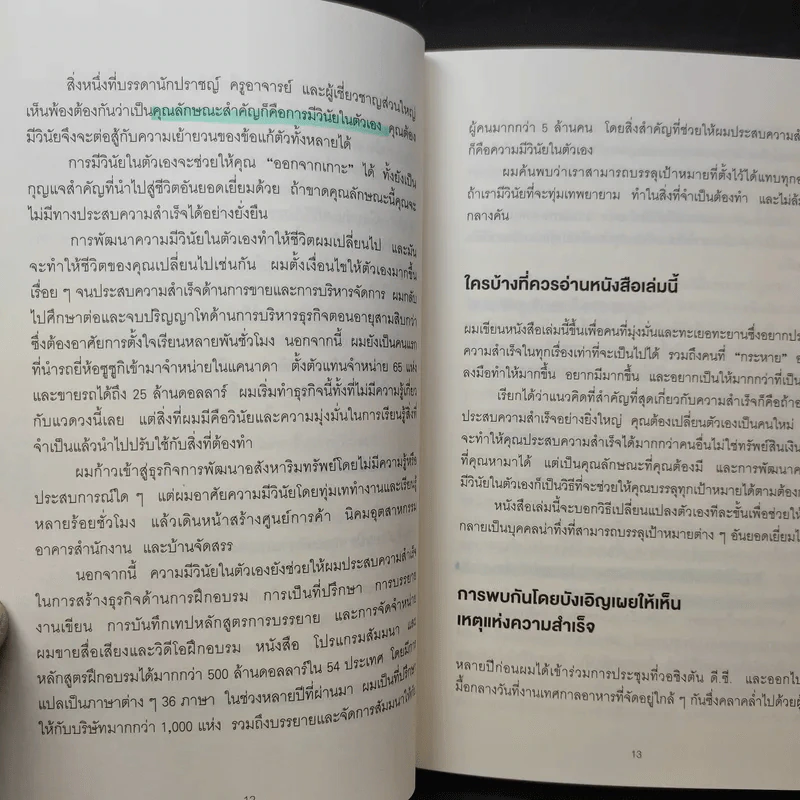 สิ่งหนึ่งที่บรรดานักปราชญ์ ครูอาจารย์ และผู้เชี่ยวชาญส่วนใหญ่
เห็นพ้องต้องกันว่าเป็นคุณลักษณะสำคัญก็คือการมีวินัยในตัวเอง คุณต้อง
มีวินัยจึงจะต่อสู้กับความเย้ายวนของข้อแก้ตัวทั้งหลายได้
การมีวินัยในตัวเองจะช่วยให้คุณ “ออกจากเกาะ” ได้ ทั้งยังเป็น
กุญแจสำคัญที่นำไปสู่ชีวิตอันยอดเยี่ยมด้วย ถ้าขาดคุณลักษณะนี้คุณจะ
ไม่มีทางประสบความสำเร็จได้อย่างยั่งยืน
การพัฒนาความมีวินัยในตัวเองทำให้ชีวิตผมเปลี่ยนไป และมัน
จะทำให้ชีวิตของคุณเปลี่ยนไปเช่นกัน ผมตั้งเงื่อนไขให้ตัวเองมากขึ้น
เรื่อย ๆ จนประสบความสำเร็จด้านการขายและการบริหารจัดการ ผมกลับ
ไปศึกษาต่อและจบปริญญาโทด้านการบริหารธุรกิจตอนอายุสามสิบกว่า
ซึ่งต้องอาศัยการตั้งใจเรียนหลายพันชั่วโมง นอกจากนี้ ผมยังเป็นคนแรก
ที่นำรถยี่ห้อซูซูกิเข้ามาจำหน่ายในแคนาดา ตั้งตัวแทนจำหน่าย 65 แห่ง
และขายรถได้ถึง 25 ล้านดอลลาร์ ผมเริ่มทำธุรกิจนี้ทั้งที่ไม่มีความรู้เกี่ยว
กับแวดวงนี้เลย แต่สิ่งที่ผมมีคือวินัยและความมุ่งมั่นในการเรียนรู้สิ่งที่
จำเป็นแล้วนำไปปรับใช้กับสิ่งที่ต้องทำ
ผมก้าวเข้าสู่ธุรกิจการพัฒนาอสังหาริมทรัพย์โดยไม่มีความรู้หรือ
ประสบการณ์ใด ๆ แต่ผมอาศัยความมีวินัยโดยทุ่มเททำงานและเรียนรู้
หลายร้อยชั่วโมง แล้วเดินหน้าสร้างศูนย์การค้า นิคมอุตสาหกรรม
อาคารสำนักงาน และบ้านจัดสรร
นอกจากนี้ ความมีวินัยในตัวเองยังช่วยให้ผมประสบความสำเร็จ
ในการสร้างธุรกิจด้านการฝึกอบรม การเป็นที่ปรึกษา การบรรยาย
งานเขียน การบันทึกเทปหลักสูตรการบรรยาย และการจัดจำหน่าย
ผมขายสื่อเสียงและวิดีโอฝึกอบรม หนังสือ โปรแกรมสัมมนา และ
หลักสูตรฝึกอบรมได้มากกว่า 500 ล้านดอลลาร์ใน 54 ประเทศ โดยมีการ
แปลเป็นภาษาต่าง ๆ 36 ภาษา ในช่วงหลายปีที่ผ่านมา ผมเป็นที่ปรึกษา
ให้กับบริษัทมากกว่า 1,000 แห่ง รวมถึงบรรยายและจัดการสัมมนาให้กับ
12
ผู้คนมากกว่า 5 ล้านคน โดยสิ่งสำคัญที่ช่วยให้ผมประสบความสำ
ก็คือความมีวินัยในตัวเอง
ผมค้นพบว่าเราสามารถบรรลุเป้าหมายที่ตั้งไว้ได้แทบทุกอ
ถ้าเรามีวินัยที่จะทุ่มเทพยายาม ทำในสิ่งที่จำเป็นต้องทำ และไม่ล้ม
กลางคัน
ใครบ้างที่ควรอ่านหนังสือเล่มนี้
ผมเขียนหนังสือเล่มนี้ขึ้นเพื่อคนที่มุ่งมั่นและทะเยอทะยานซึ่งอยากประ
ความสำเร็จในทุกเรื่องเท่าที่จะเป็นไปได้ รวมถึงคนที่ “กระหาย” อ
ลงมือทำให้มากขึ้น อยากมีมากขึ้น และอยากเป็นให้มากกว่าที่เป็น
เรียกได้ว่าแนวคิดที่สำคัญที่สุดเกี่ยวกับความสำเร็จก็คือถ้าอ
ประสบความสำเร็จอย่างยิ่งใหญ่ คุณต้องเปลี่ยนตัวเองเป็นคนใหม่
จะทำให้คุณประสบความสำเร็จได้มากกว่าคนอื่นไม่ใช่ทรัพย์สินเงิน
ที่คุณหามาได้ แต่เป็นคุณลักษณะที่คุณต้องมี และการพัฒนาค
มีวินัยในตัวเองก็เป็นวิธีที่จะช่วยให้คุณบรรลุทุกเป้าหมายได้ตามต้อง
หนังสือเล่มนี้จะบอกวิธีเปลี่ยนแปลงตัวเองทีละขั้นเพื่อช่วยให้
กลายเป็นบุคคลน่าทึ่งที่สามารถบรรลุเป้าหมายต่าง ๆ อันยอดเยี่ยมไ
การพบกันโดยบังเอิญเผยให้เห็น
เหตุแห่งความสำเร็จ
หลายปีก่อนผมได้เข้าร่วมการประชุมที่วอชิงตัน ดี.ซี. และออกไป
มื้อกลางวันที่งานเทศกาลอาหารที่จัดอยู่ใกล้ ๆ กันซึ่งคลาคล่ำไปด้วยผู้
13